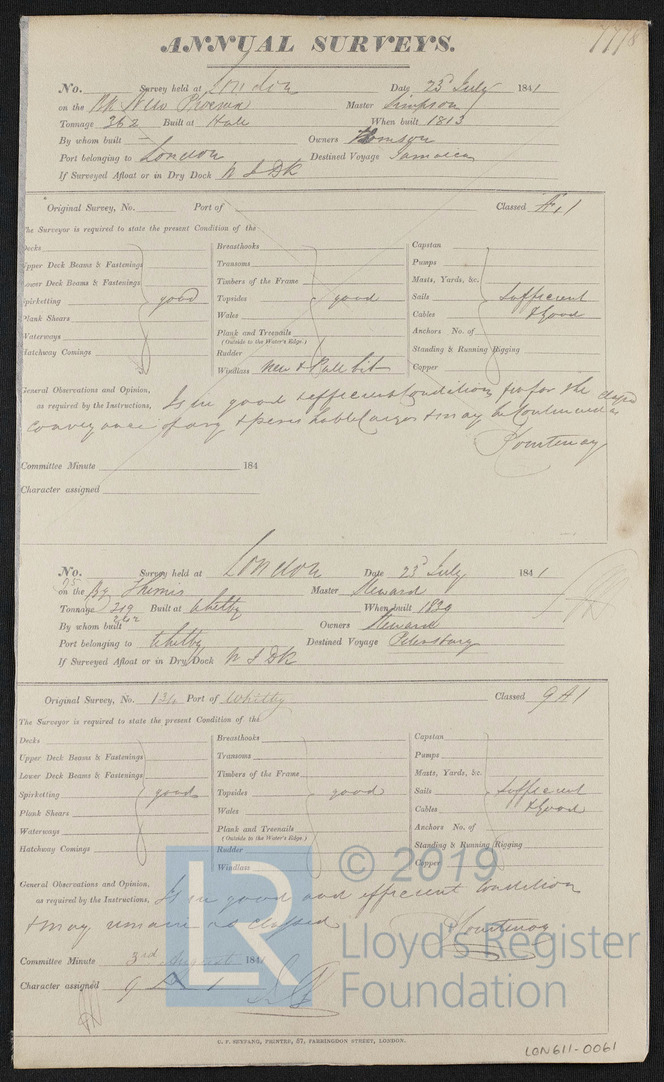 7778
ANNUAL SURVEYS.
No. Survey held at London Date 23d July 1841
on the Bk New Phoenix Master Simpson
Tonnage 362 Built at Hull When built 1813
By whom built — Owners Thomson
Port belonging to London Destined Voyage Jamaica
If Surveyed Afloat or in Dry Dock W I DK
Original Survey, No. Port of Classed Æ 1
The Surveyor is required to state the present Condition of the
Decks Breasthooks Capstan
Upper Deck Beams & Fastenings Transoms Pumps
Lower Deck Beams & Fastenings Timbers of the Frame Masts, Yards, &c.
Spirketting good Topsides good Sails Sufficient
Plank Shears Wales Cables & Good
Waterways Plank and Treenails Anchors No. of
(Outside to the Water's Edge.)
Hatchway Comings Rudder Standing & Running Rigging
Windlass New & Pall bit Copper
General Observations and Opinion, as required by the Instructions, Is in good & efficient Condition fit for the
conveyance of dry & perishable Cargoes & may be Continued as Classed
P Courtenay
Committee Minute 184
Character assigned
No. Survey held at London Date 23d July 1841
75
on the Bg Themis Master Steward
Tonnage 219 Built at Whitby When built 1839
242
By whom built Owners Steward
Port belonging to Whitby Destined Voyage Petersburg
If Surveyed Afloat or in Dry Dock W I DK
Original Survey, No. 136 Port of Whitby Classed 9 A 1
The Surveyor is required to state the present Condition of the
Decks Breasthooks Capstan
Upper Deck Beams & Fastenings Transoms Pumps
Lower Deck Beams & Fastenings Timbers of the Frame Masts, Yards, &c.
Spirketting good Topsides good Sails Sufficient
Plank Shears Wales Cables & Good
Waterways Plank and Treenails Anchors No. of
(Outside to the Water's Edge.)
Hatchway Comings Rudder Standing & Running Rigging
Windlass Copper
General Observations and Opinion, as required by the Instructions, Is in good and efficient Condition
& may remain as classed P Courtenay
Committee Minute 3rd August 184
Character assigned 9 A 1
LR © 2019
Lloyd's Register
Foundation
C. F. SEYFANG, PRINTER, 57, FARRINGDON STREET, LONDON.
LON611-0061